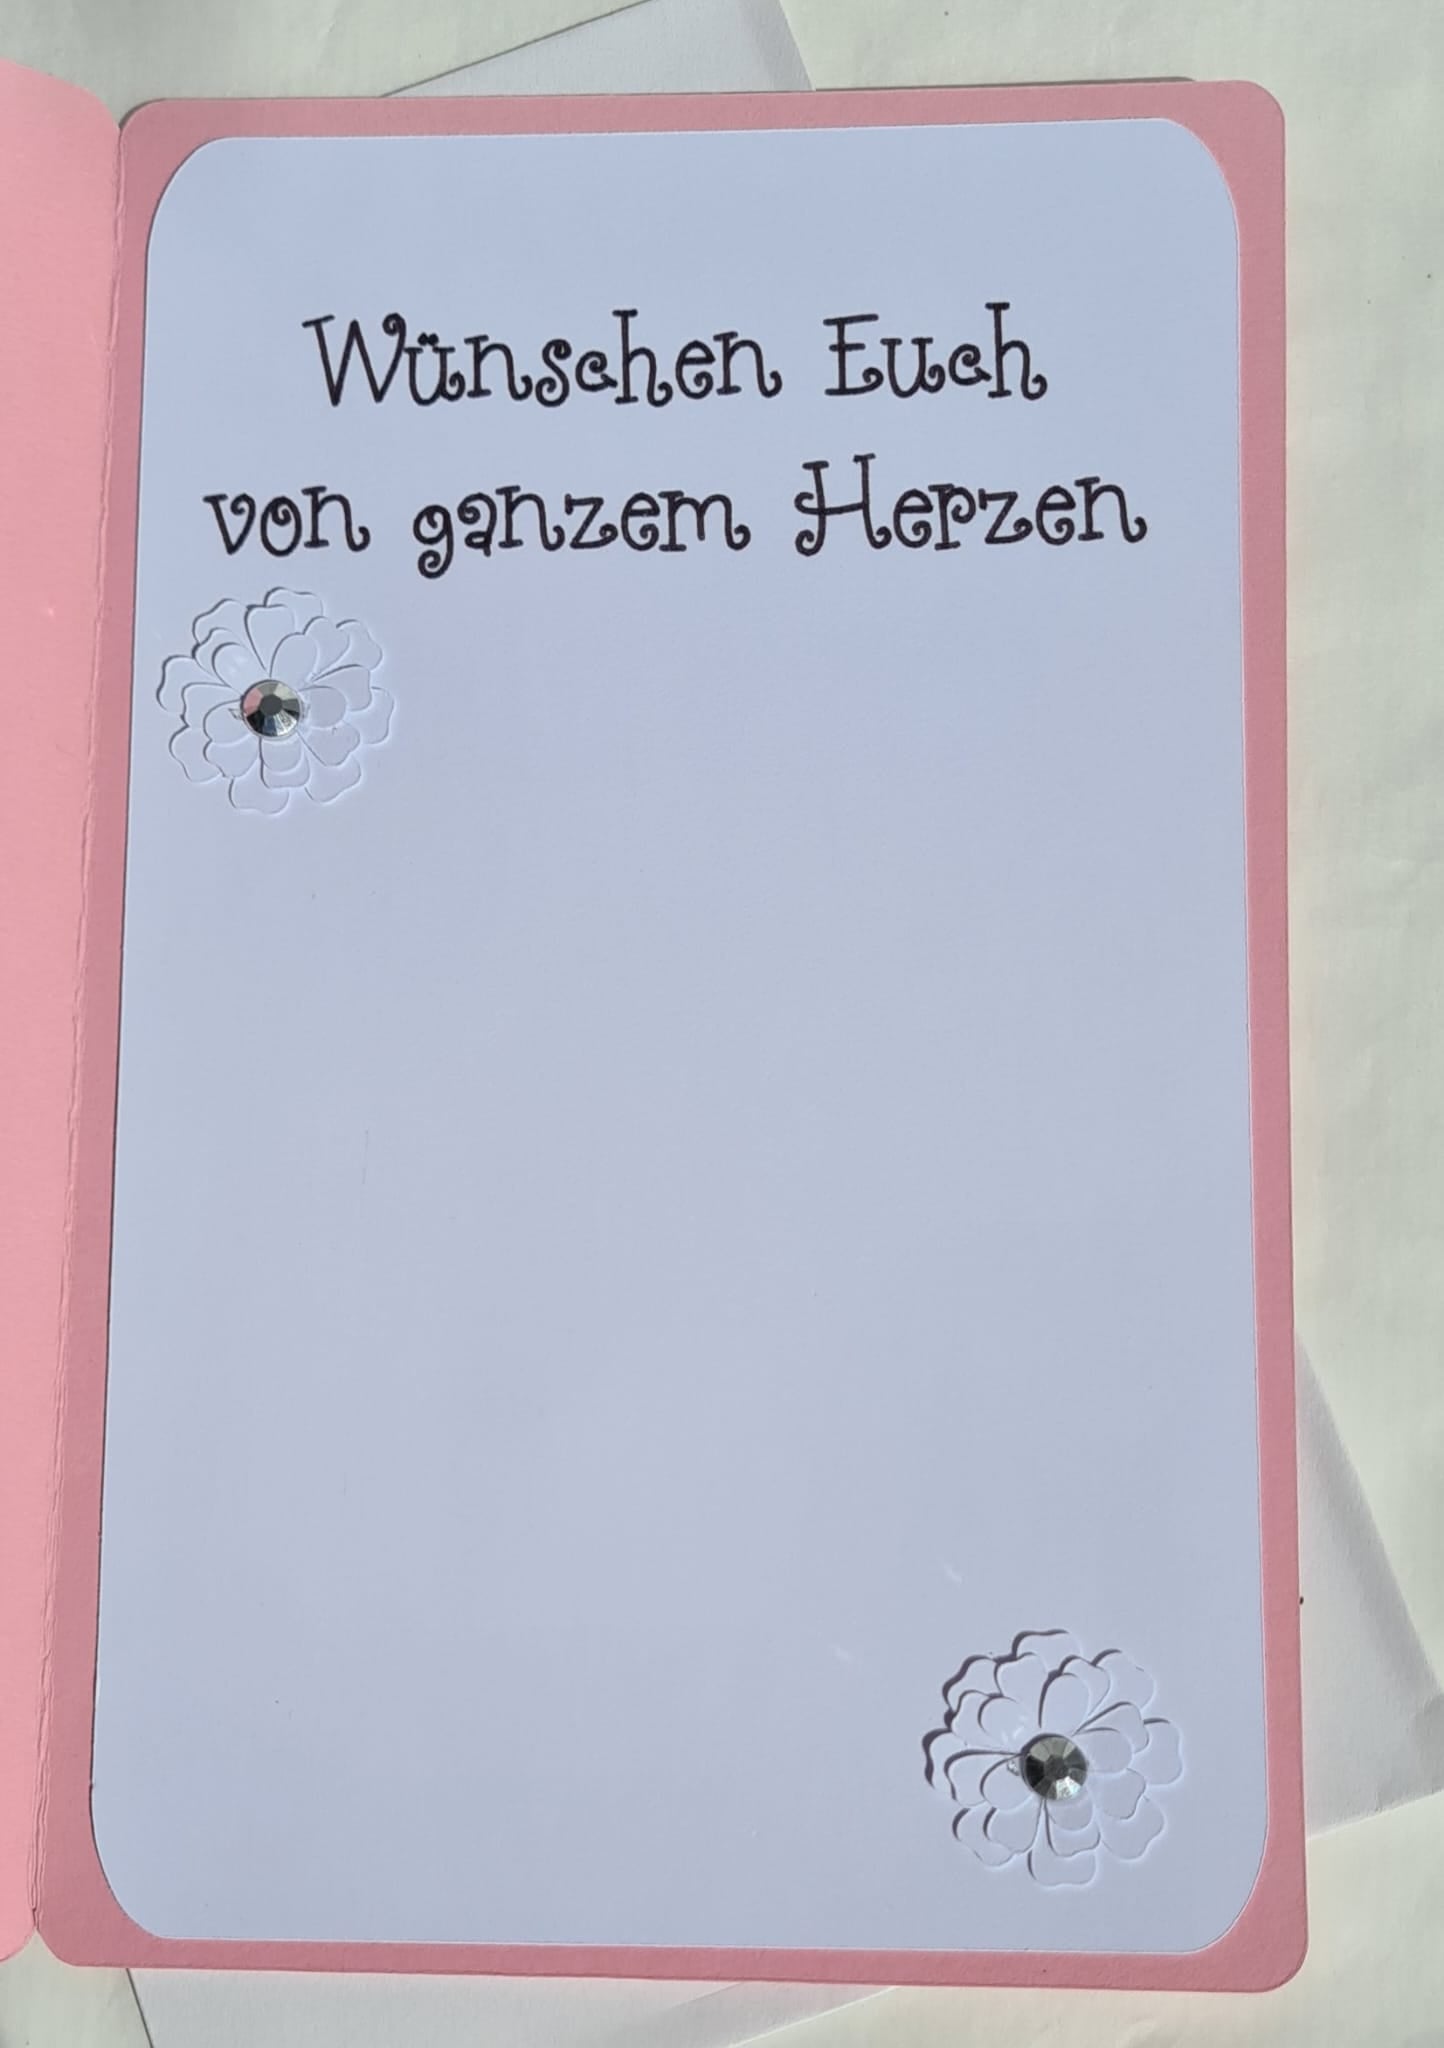 Wünschen Euch
von ganzem Herzen